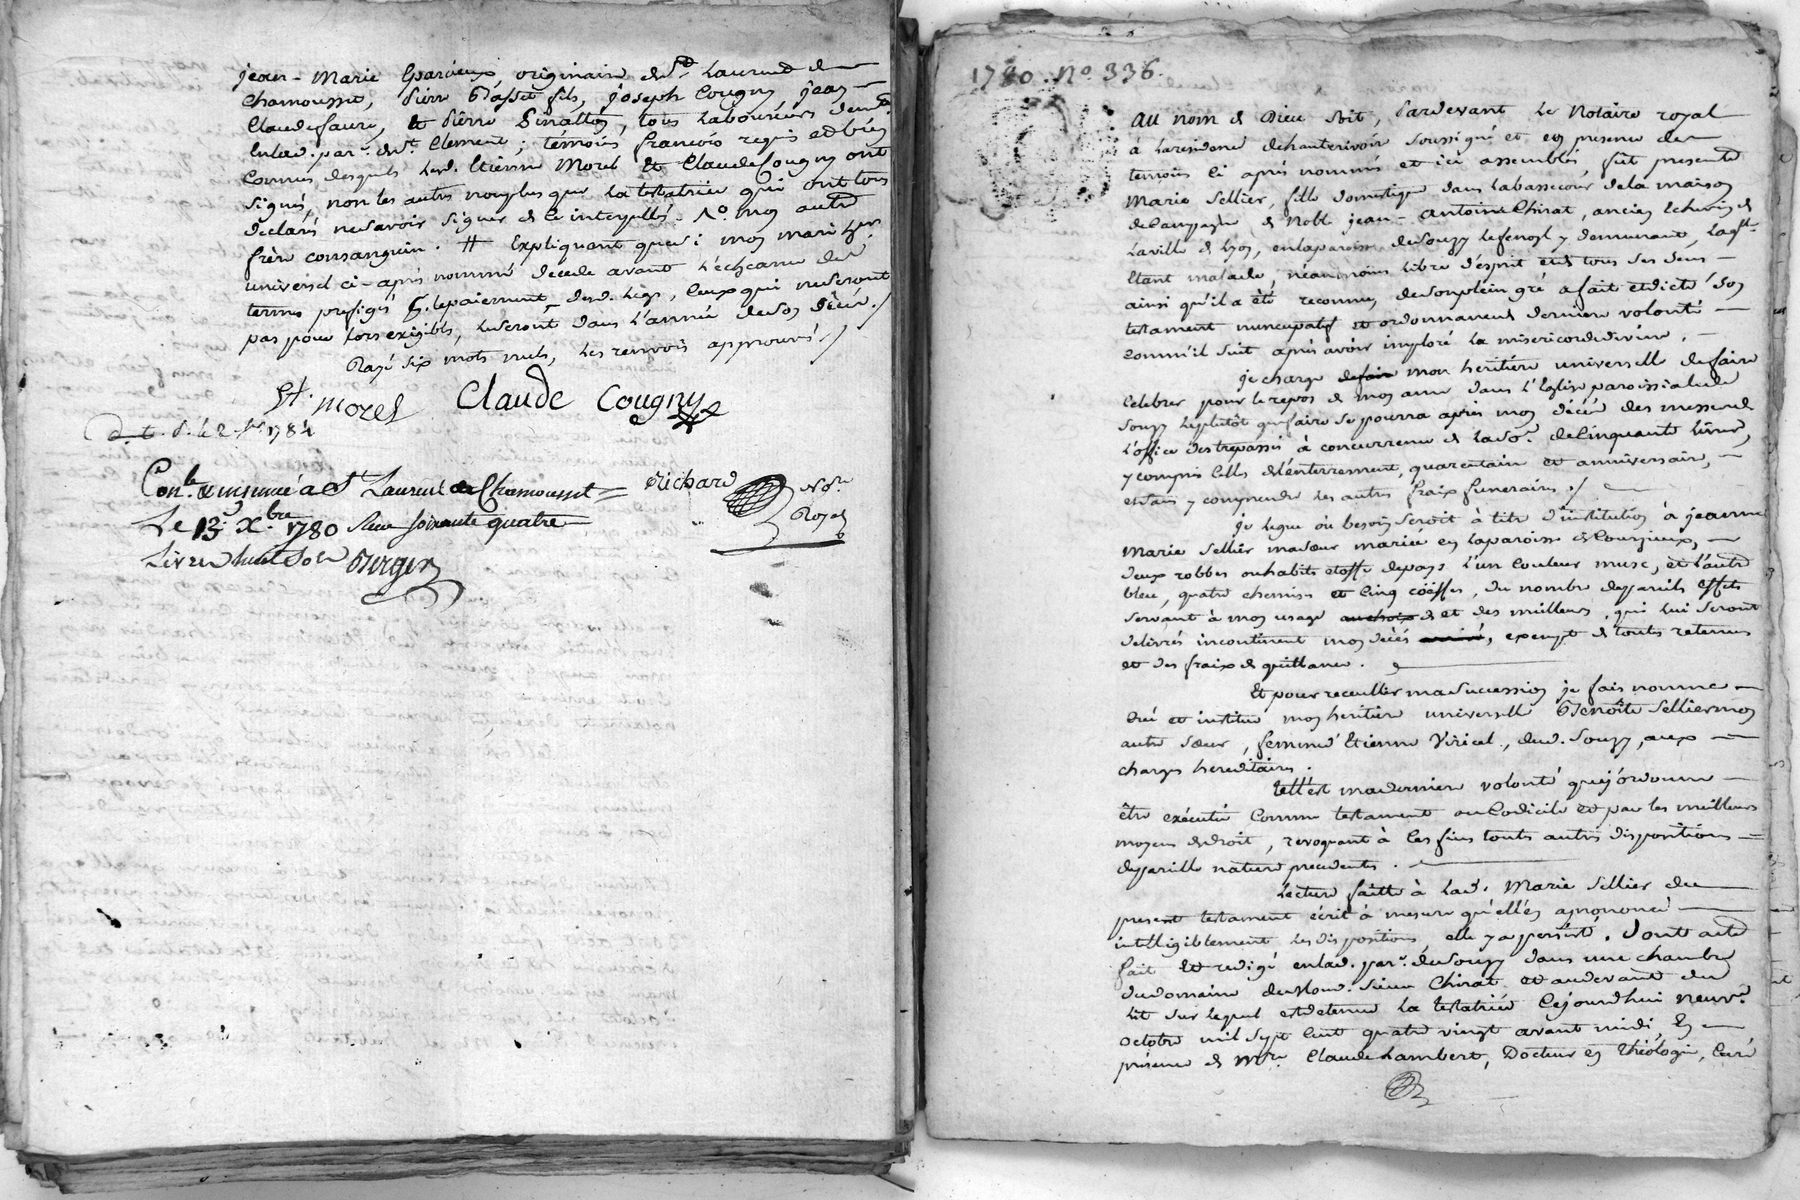 jean-Marie Gparieux, originaire de St. Laurend de
chamousset, Pierre fils, joseph Cougny jean-
Claude faure, et Pierre Pinatton, tous Laboureurs demts.
enlad. par. de St. Clement; témoins françois requis
connus, desquels Led. Etienne Morel et Claude Cougny ont
signés, non les autres nonplus que La testatrice qui ont tous
declarés ne savoir signer de ce interpellés. No. mon autre
frère consanguin. # Expliquant que si mon mari
universel ci-après nommé decede avant L'echeance des
termes prefigés le paiement desd. Legs, ceux qui ne seront
pas pour lors exigibles, Le seront dans L'année de son décès ./
Rayé six mots nuls, Les renvois approuvés ./.
St. morel Claude Cougny
1784
Conlé. & insinué a St Laurent de Chamousset Richard Nore.
Le 13 Xbre 1780 Recu soixante quatre Royal
Livres huit Sols Berger
1780. No. 336.
au nom de Dieu soit, Pardevant Le Notaire royal
à La residence de chanterivoir Soussigné et en presence des
temoins ci après nommés et ici assemblés fut presente
Marie Sellier, fille domestique dans La bassecour de la maison
de Campagne de Noble jean-antoine Chirat, ancien Echevin de
La ville de Lyon, en la paroisse de Souzy y demeurant, Laqlle.
Etant malade, néanmoins libre d'esprit et de tous ses sens
ainsi qu'il a été reconnu, de son plein gré a fait et dicté son
testament nuncupatif et ordonnance de derniere volonté
comm'il suit après avoir imploré La misericorde divine.
je charge defaire mon héritière universelle de faire
celebrer pour le repos de mon ame dans L'Eglise paroissiale de
Souzy Le plutôt que faire se pourra après mon décés des messes de
L'office des trepassés à concurrence de La So.e de Cinquante Livres,
y compris celles d'enterrement, quarantain et anniversaire,
et sans y comprendre Les autres fraix funeraires ./
je legue où besoin seroit à titre d'institution à jeanne
Marie Sellier ma sœur mariée en La paroisse de Courzieux,
deux robbes ou habits etoffe de pays L'un Couleur musc, et L'autre
bleu, quatre chemises et cinq coëffes, du nombre de pareils effets
servant à mon usage au choix et des meilleurs, qui Lui seront
delivrés incontinent mon décés , exempt de toutes retenues
et des fraix de quittance.
Et pour receuillir ma Succession je fais nomme
crée et institue mon heritière universelle Benoîte Sellier mon
autre Sœur, femme d'Etienne Viricel, dud. Souzy, aux
charges hereditaires.
telle est ma derniere volonté que j'ordonne
être exécutée Comme testament ou Codicile et par les meilleurs
moyens de droit, revoquant à Ces fins toutes autres dispositions
de pareille nature precedentes.
Lecture faitte à Lad. Marie Sellier du
present testament écrit à mesure qu'elle en a prononcé
intelligiblement Les dispositions, elle y a persisté. Dont acte
fait et redigé en lad. par. de Souzy dans une chambre
du domaine dud. Sieur Chirat et au devant du
Lit sur Lequel est detenue La testatrice Cejourdhui neuve.
octobre mil sept cent quatre vingt avant midi, En
présence de Mre. Claude Lambert, Docteur en théologie, Curé